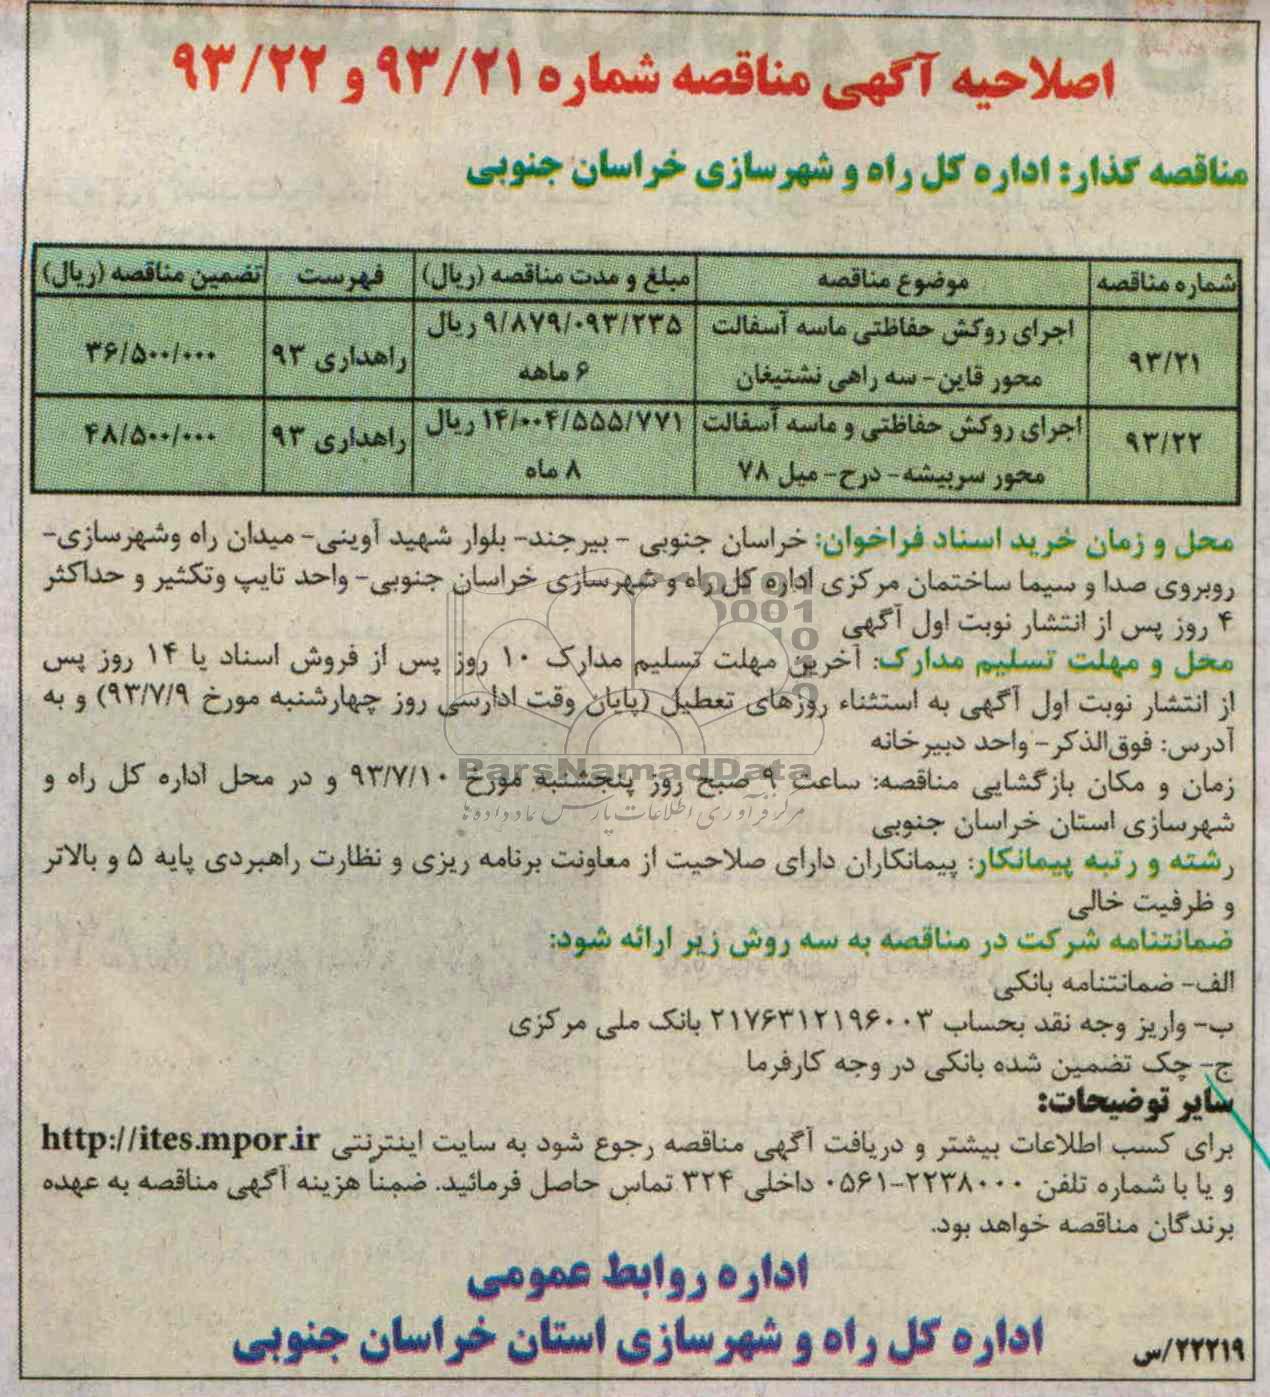 اصلاحیه آگهی مناقصه شماره ۹۳/۲۱ و ۹۳/۲۲
مناقصه گذار: اداره کل راه و شهرسازی خراسان جنوبی
شماره مناقصه موضوع مناقصه مبلغ و مدت مناقصه (ریال) فهرست تضمین مناقصه (ریال)
۹۳/۲۱ اجرای روکش حفاظتی ماسه آسفالت محور قاین- سه راهی نشتیفان ۹/۸۷۹/۰۹۳/۲۳۵ ریال ۶ ماهه راهداری ۹۳ ۳۶/۵۰۰/۰۰۰
۹۳/۲۲ اجرای روکش حفاظتی و ماسه آسفالت محور سربیشه- درح- میل ۷۸ ۱۴/۰۰۴/۵۵۵/۷۷۱ ریال ۸ ماه راهداری ۹۳ ۴۸/۵۰۰/۰۰۰
محل و زمان خرید اسناد فراخوان: خراسان جنوبی - بیرجند- بلوار شهید آوینی- میدان راه وشهرسازی-
روبروی صدا و سیما ساختمان مرکزی اداره کل راه و شهرسازی خراسان جنوبی- واحد تایپ وتکثیر و حداکثر
۴ روز پس از انتشار نوبت اول آگهی
محل و مهلت تسلیم مدارک: آخرین مهلت تسلیم مدارک ۱۰ روز پس از فروش اسناد یا ۱۴ روز پس
از انتشار نوبت اول آگهی به استثناء روزهای تعطیل (پایان وقت ادارسی روز چهارشنبه مورخ ۹۳/۷/۹) و به
آدرس: فوق‌الذکر- واحد دبیرخانه
زمان و مکان بازگشایی مناقصه: ساعت ۹ صبح روز پنجشنبه مورخ ۹۳/۷/۱۰ و در محل اداره کل راه و
شهرسازی استان خراسان جنوبی
رشته و رتبه پیمانکار: پیمانکاران دارای صلاحیت از معاونت برنامه ریزی و نظارت راهبردی پایه ۵ و بالاتر
و ظرفیت خالی
ضمانتنامه شرکت در مناقصه به سه روش زیر ارائه شود:
الف- ضمانتنامه بانکی
ب- واریز وجه نقد بحساب ۲۱۷۶۳۱۲۱۹۶۰۰۳ بانک ملی مرکزی
ج- چک تضمین شده بانکی در وجه کارفرما
سایر توضیحات:
برای کسب اطلاعات بیشتر و دریافت آگهی مناقصه رجوع شود به سایت اینترنتی http://ites.mpor.ir
و یا با شماره تلفن ۲۲۳۸۰۰۰-۰۵۶۱ داخلی ۳۲۴ تماس حاصل فرمائید. ضمناً هزینه آگهی مناقصه به عهده
برندگان مناقصه خواهد بود.
اداره روابط عمومی
اداره کل راه و شهرسازی استان خراسان جنوبی
۲۲۲۱۹/س
ParsNamadData
مرکز فرآوری اطلاعات پارس نماد داده ها